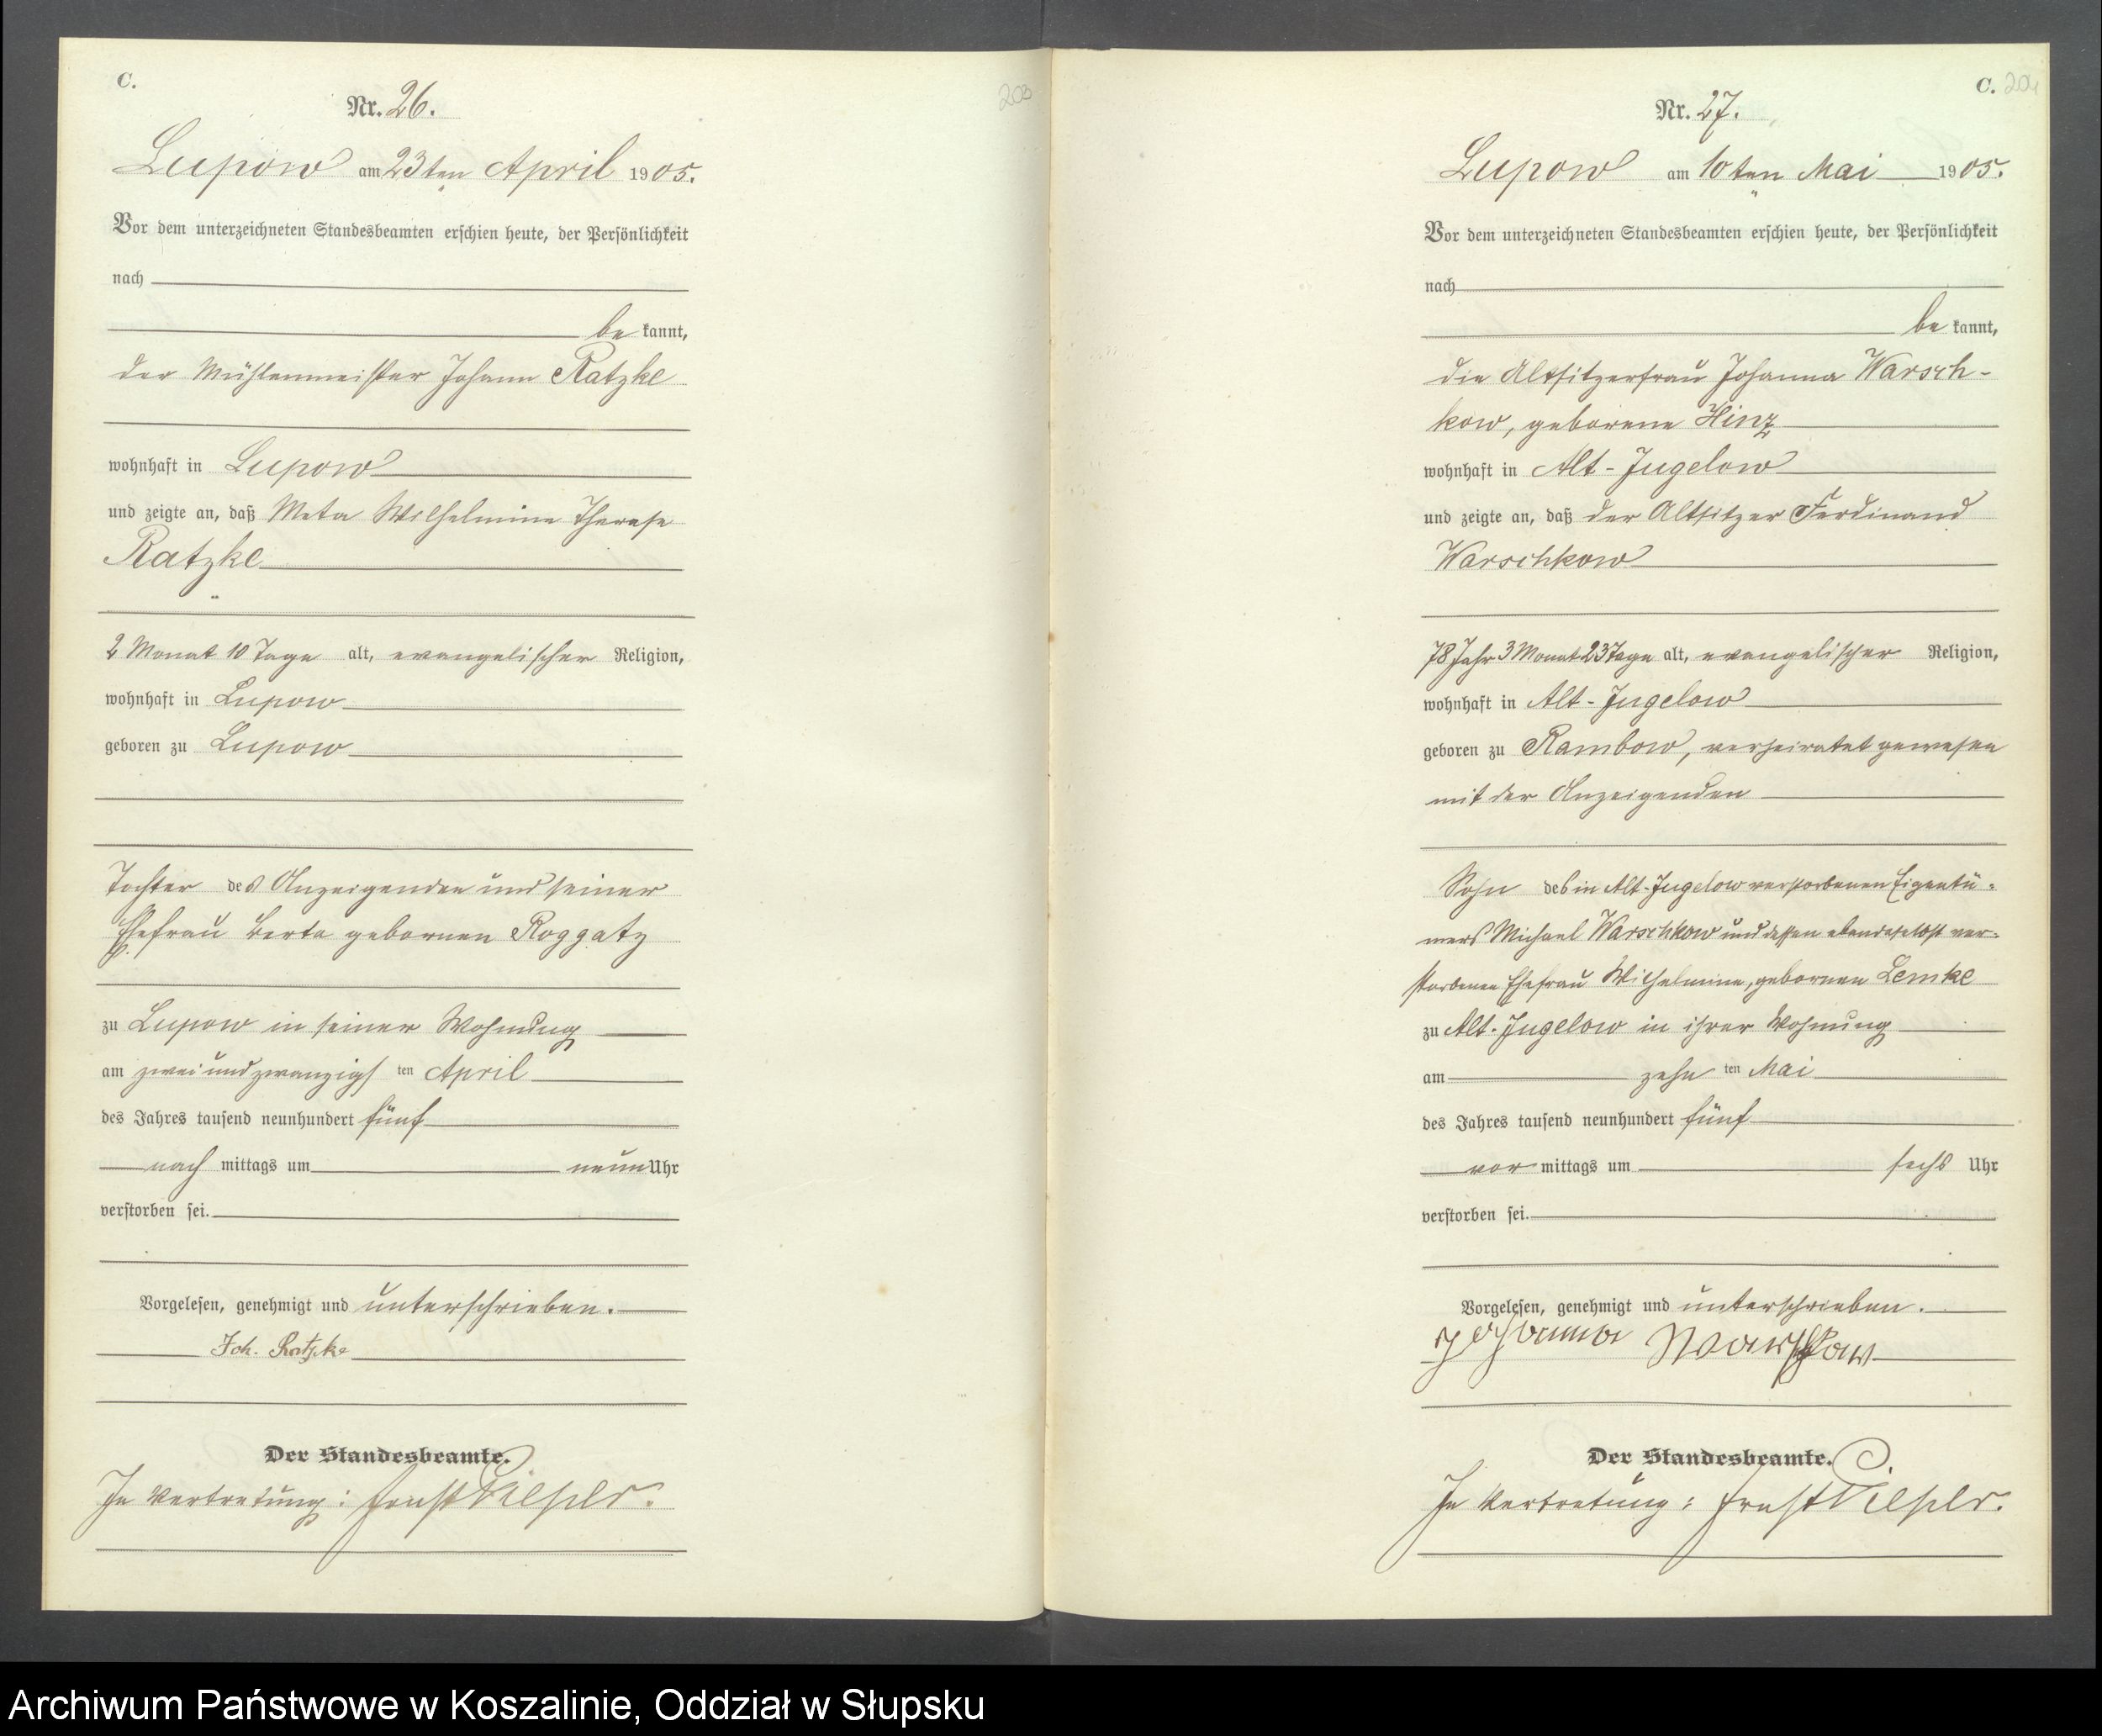 C.
203
Nr. 26.
Lupow am 23ten April 1905.
Vor dem unterzeichneten Standesbeamten erschien heute, der Persönlichkeit
nach
be kannt,
der Mühlenmeister Johann Ratzke
wohnhaft in Lupow
und zeigte an, daß Meta Wilhelmine Therese
Ratzke
2 Monat 10 Tage alt, evangelischer Religion,
wohnhaft in Lupow
geboren zu Lupow
Tochter des Anzeigenden und seiner
Ehefrau Berta gebornen Roggatz
zu Lupow in seiner Wohnung
am zwei und zwanzigs ten April
des Jahres tausend neunhundert fünf
nach mittags um neun Uhr
verstorben sei.
Vorgelesen, genehmigt und unterschrieben.
Joh. Ratzke
Der Standesbeamte.
In Vertretung: Ernst
C. 204
Nr. 27.
Lupow am 10ten Mai 1905.
Vor dem unterzeichneten Standesbeamten erschien heute, der Persönlichkeit
nach
be kannt,
die Altsitzerfrau Johanna Warsch-
kow, geborene Hinz
wohnhaft in Alt-Jugelow
und zeigte an, daß der Altsitzer Ferdinand
Warschkow
78 Jahr 3 Monat 23 Tage alt, evangelischer Religion,
wohnhaft in Alt-Jugelow
geboren zu Rambow, verheiratet gewesen
mit der Anzeigenden
Sohn des in Alt-Jugelow verstorbenen Eigentü-
mers Michael Warschkow und dessen ebendaselbst ver-
storbenen Ehefrau Wilhelmine, gebornen Lemke
zu Alt-Jugelow in ihrer Wohnung
am zehn ten Mai
des Jahres tausend neunhundert fünf
vor mittags um sechs Uhr
verstorben sei.
Vorgelesen, genehmigt und unterschrieben.
Johanna Warschkow
Der Standesbeamte.
In Vertretung: Ernst
Archiwum Państwowe w Koszalinie, Oddział w Słupsku